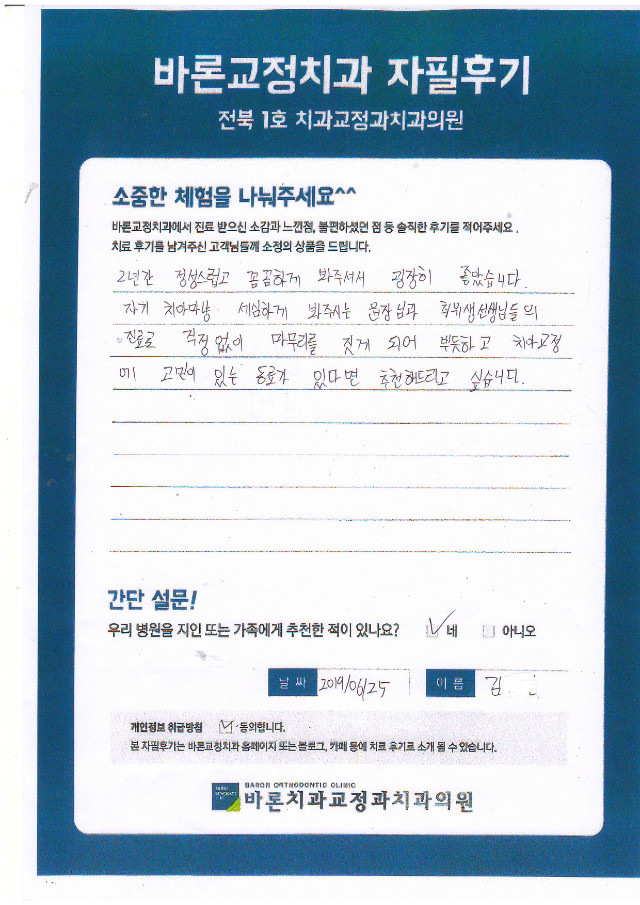 바론교정치과 자필후기
전북 1호 치과교정과치과의원
소중한 체험을 나눠주세요^^
바론교정치과에서 진료 받으신 소감과 느낀점, 불편하셨던 점 등 솔직한 후기를 적어주세요.
치료 후기를 남겨주신 고객님들께 소정의 상품을 드립니다.
2년간 정성스럽고 꼼꼼하게 봐주셔서 굉장히 좋았습니다.
자기 치아마냥 세심하게 봐주시는 원장님과 치위생선생님들의
진료로 걱정없이 마무리를 짓게 되어 뿌듯하고 치아교정
에 고민이 있는 동료가 있다면 추천해드리고 싶습니다.
간단 설문!
우리 병원을 지인 또는 가족에게 추천한 적이 있나요? 네 아니오
날 짜 2019/06/25 이 름 김
개인정보 취급방침 동의합니다.
본 자필후기는 바론교정치과 홈페이지 또는 블로그, 카페 등에 치료 후기로 소개 될 수 있습니다.
BARON ORTHODONTIC CLINIC
바론치과교정과치과의원